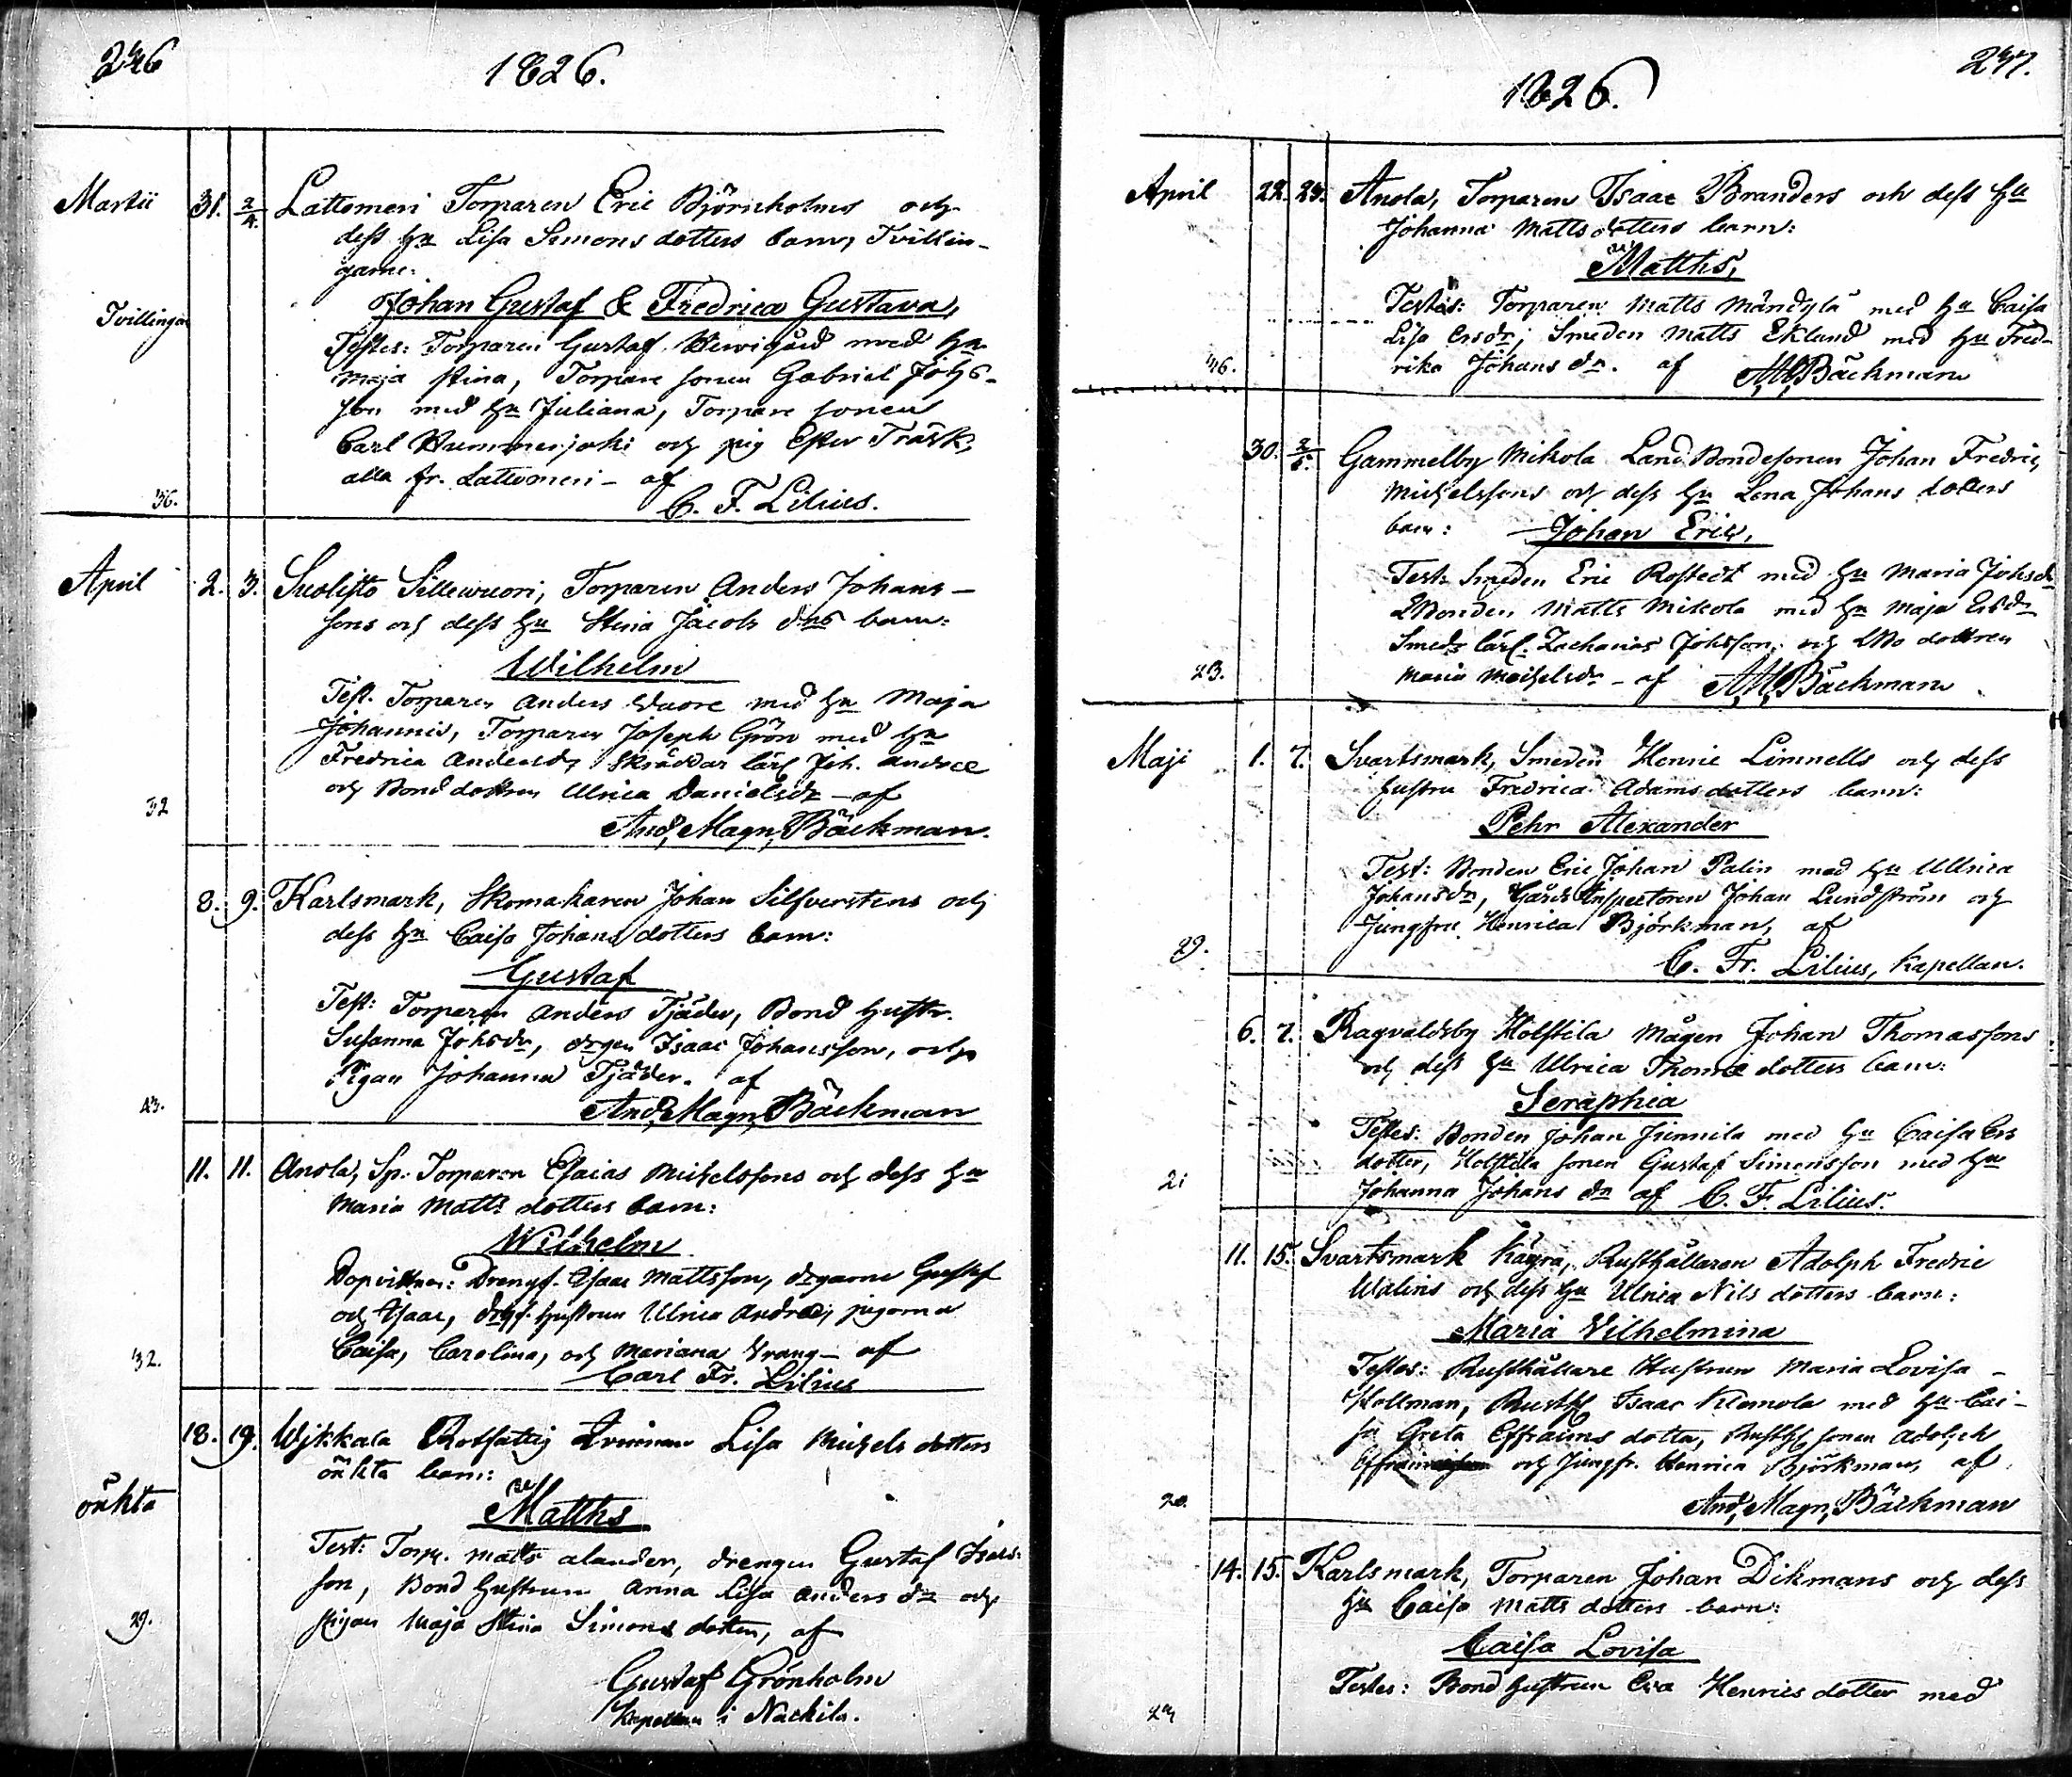 246
1826.
Martii 31. 2/4. Lattomeri Torparen Eric Björnholms och
dess hu Lisa Simons dotters barn, Tvillin-
garne:
Tvillingar
Johan Gustaf & Fredrica Gustava,
Testes: Torparen Gustaf med hu
Maja Stina, Torpare sonen Gabriel Johs-
son med hu Juliana, Torpare sonen
Carl Hummerjoki och pig Ester Träsk,
alla fr. Lattomeri - af
36. C. F. Lilius.
April 2. 3. Suolisto Sillewuori, Torparen Anders Johans-
sons och dess hu Stina Jacobs drs barn:
Wilhelm
Test. Torparen Anders med hu Maja
Johannis, Torparen Joseph Grön med hu
Fredrica Andersdr, Skräddar lärl Joh. Andree
och Bond dottren Ulrica Danielsdr - af
32 And. Magn. Bäckman.
8. 9. Karlsmark, Skomakaren Johan Silfverstens och
dess hu Caisa Johans dotters barn:
Gustaf
Test: Torparen Anders Tjäder, Bond hustr.
Susanna Johsdr, drgen Isaac Johansson, och
Pigan Johanna Tjäder. af
43. And. Magn. Bäckman
11. 11. Anola, Sp. Torparen Esaias Michelssons och dess hu
Maria Matts dotters barn:
Wilhelm
Dopvittnen: Drengs. Isaac Mattsson, drgarne Gustaf
och Isaac, drgs. hustrun Ulrica Andreæ, pigorna
Caisa, Carolina, och Mariana Vrang - af
32. Carl Fr. Lilius
18. 19. Wjkkala Rotfattig Lisa Michels dotters
oäkta barn:
oäkta
Matths
Test: Torp. Matts Alander, drengen Gustaf Isacs-
son, Bond hustrun Anna Lisa Anders dr och
29. pigan Maja Stina Simons dotter, af
Gustaf Grönholm
Kapellan i Nackila.
247.
1826.
April 22. 23. Anola, Torparen Isaac Branders och dess hu
Johanna Matts dotters barn:
Matths,
Testes: Torparen Matts Mändylä med hu Caisa
Lisa Ersdr; Smeden Matts Eklund med hu Fred-
36. rika Johans dr. af A. M. Bäckman
30. 2/5. Gammelby Mikola Land Bondesonen Johan Fredric
Michelssons och dess hu Lena Johans dotters
barn: Johan Eric,
Test: Smeden Eric Rostedt med hu Maria Johsdr
LBonden Matts Mikola med hu Maja Ersdr
Smeds lärl. Zacharias Johsson, och LBo dottren
23. Maria Michelsdr - af A. M. Bäckman
Maji 1. 7. Svartsmark, Smeden Henric Linnells och dess
hustru Fredrica Adams dotters barn:
Pehr Alexander
Test: Bonden Eric Johan Palin med hu Ulrica
Johansdr, Gårds Inspectoren Johan Lundström och
Jungfru Henrica Björkman, af
29. C. Fr. Lilius, Kapellan.
6. 7. Ragvaldsby Holstila Mågen Johan Thomassons
och dess hu Ulrica Thomæ dotters barn:
Seraphia
Testes: Bonden Johan Jinnila med hu Caisa Ers
dotter, Holstila sonen Gustaf Simonsson med hu
21 Johanna Johans dr af C. F. Lilius.
11. 15. Svartsmark Kägra, Rusthållaren Adolph Fredric
Walins och dess hu Ulrica Nils dotters barn:
Maria Vilhelmina
Testes: Rusthållare Hustrun Maria Lovisa
Hollman, Rusth Isaac Klemola med hu Cai-
sa Greta Effraims dotter, Rusth sonen Adolph
och Jungfr. Henrica Björkman, af
20. And. Magn. Bäckman
14. 15. Karlsmark, Torparen Johan Dikmans och dess
hu Caisa Matts dotters barn:
Caisa Lovisa
Testes: Bond hustrun Eva Henrics dotter med